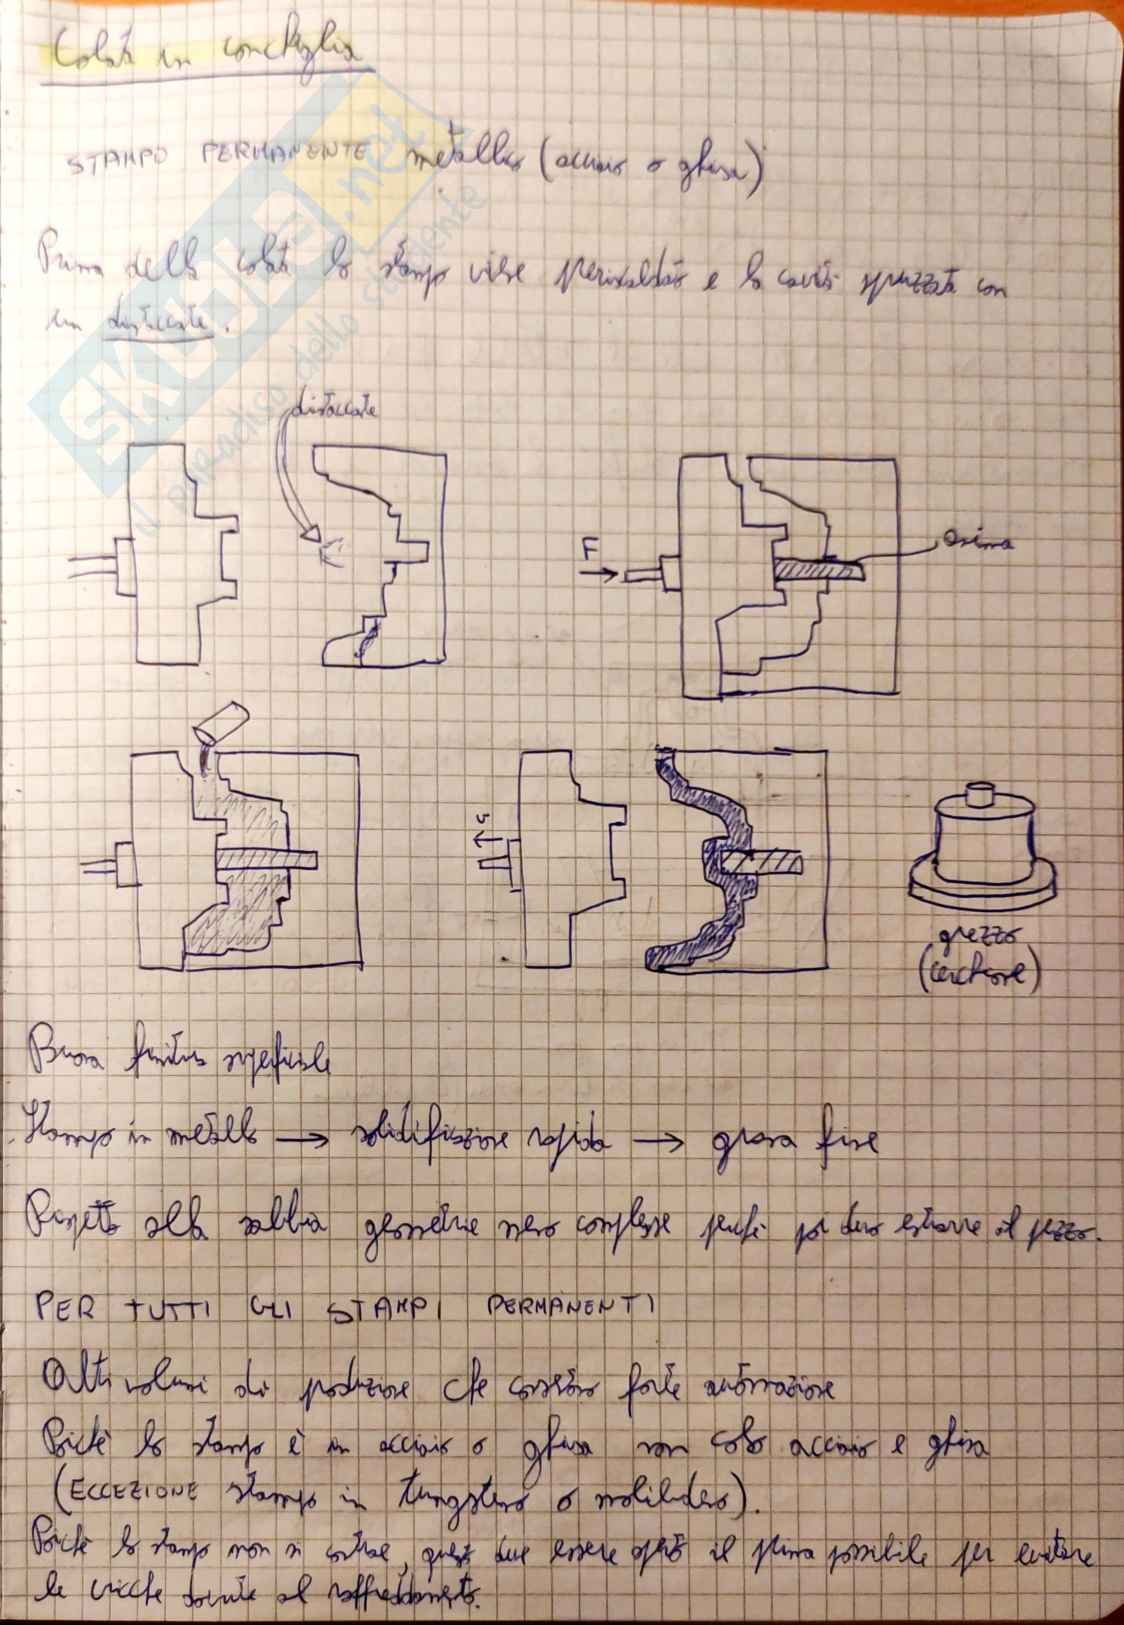 Colata in conchiglia
STAMPO PERMANENTE metallico (acciaio o ghisa)
Prima della colata lo stampo viene periscaldato e la cavità spruzzata con
un distaccante.
distaccante
F
anima
v
grezzo
(cerchione)
Buona finitura superficiale
Stampo in metallo → solidificazione rapida → grana fine
Rispetto alla sabbia geometrie meno complesse perché poi devo estrarre il pezzo.
PER TUTTI GLI STAMPI PERMANENTI
Alti volumi di produzione che consentono forte automazione
Poiché lo stampo è in acciaio o ghisa non colo acciaio e ghisa
(ECCEZIONE stampo in tungsteno o molibdeno).
Poiché lo stampo non si contrae, questo deve essere aperto il prima possibile per evitare
le cricche dovute al raffreddamento.
SKUOLA.net
il paradiso dello studente